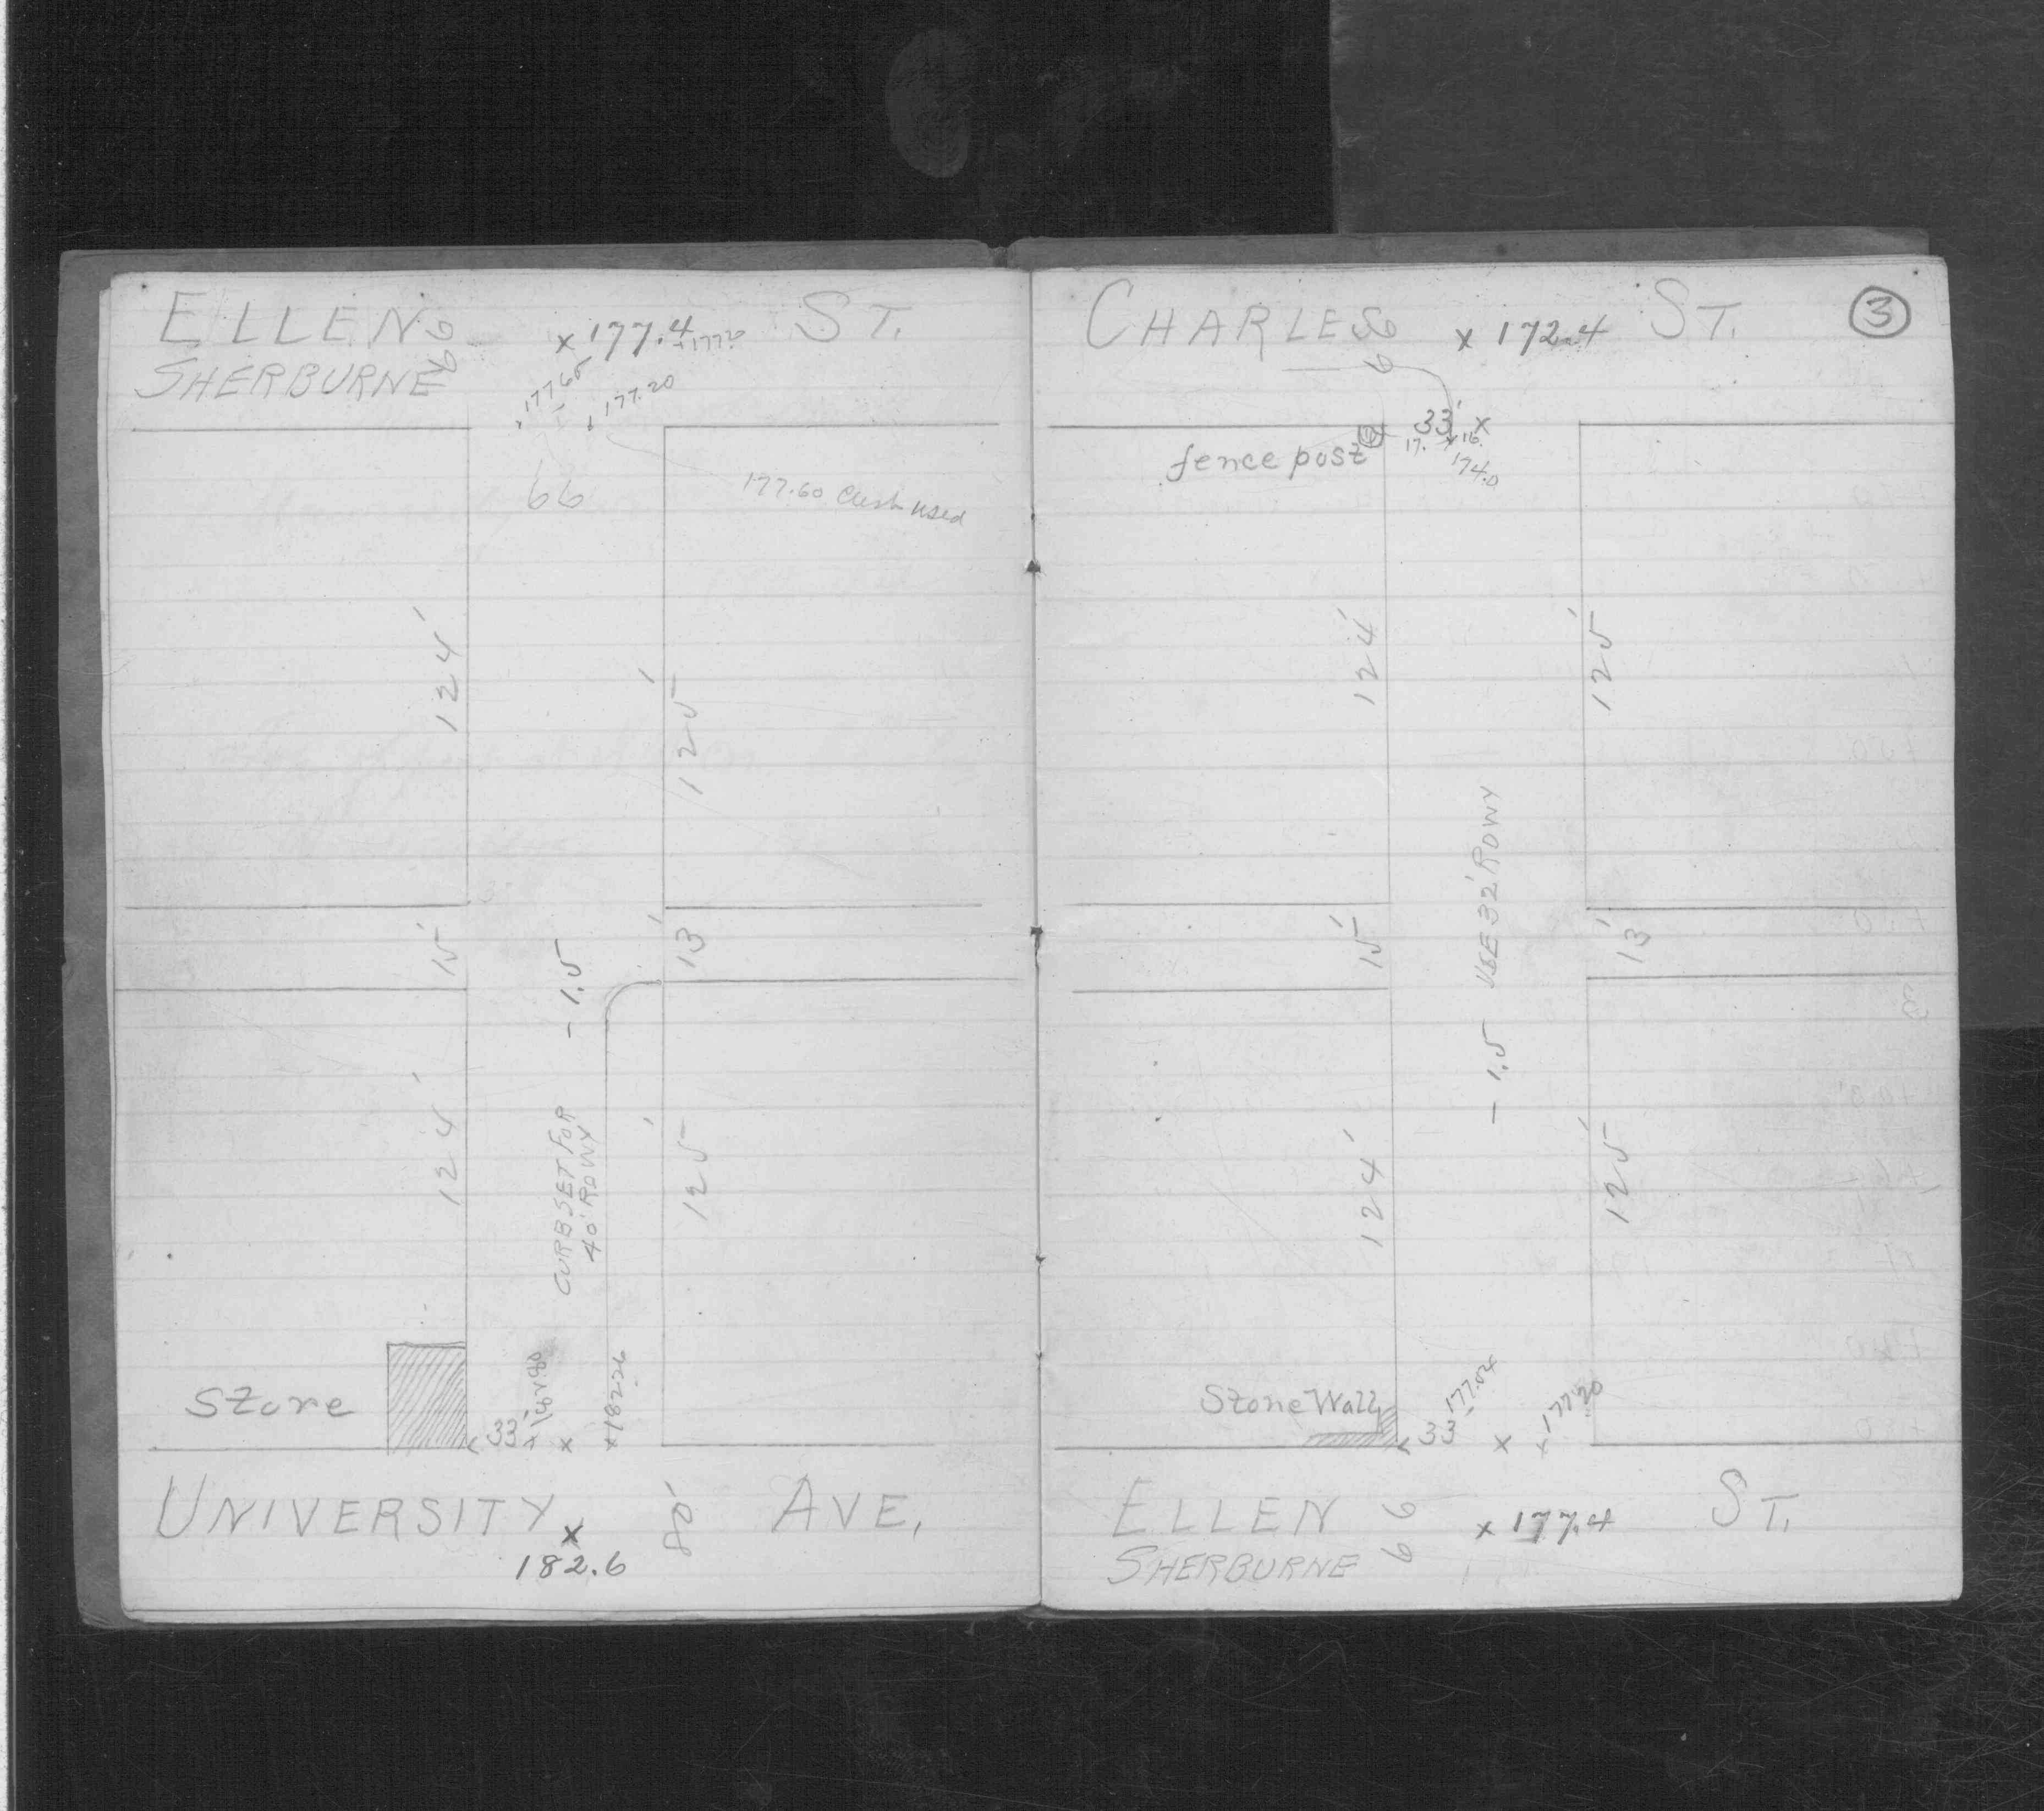 ELLEN 66 x 177.4 ST.
+177.20
SHERBURNE
177.65
177.20
66
177.60 used
124'
125'
15'
13'
- 1.5
124'
125'
CURB SET FOR
40' RDWY
Store
33'
x 182.26
UNIVERSITY x 80' AVE.
182.6
CHARLES 66 x 172.4 ST.
3
33' x
fence post
17. x 16.
174.0
124'
125'
USE 32' RDWY
15'
13'
- 1.5
124'
125'
Stone Wall
33'
177.04
x
+ 177.20
ELLEN 66 x 177.4 ST.
SHERBURNE